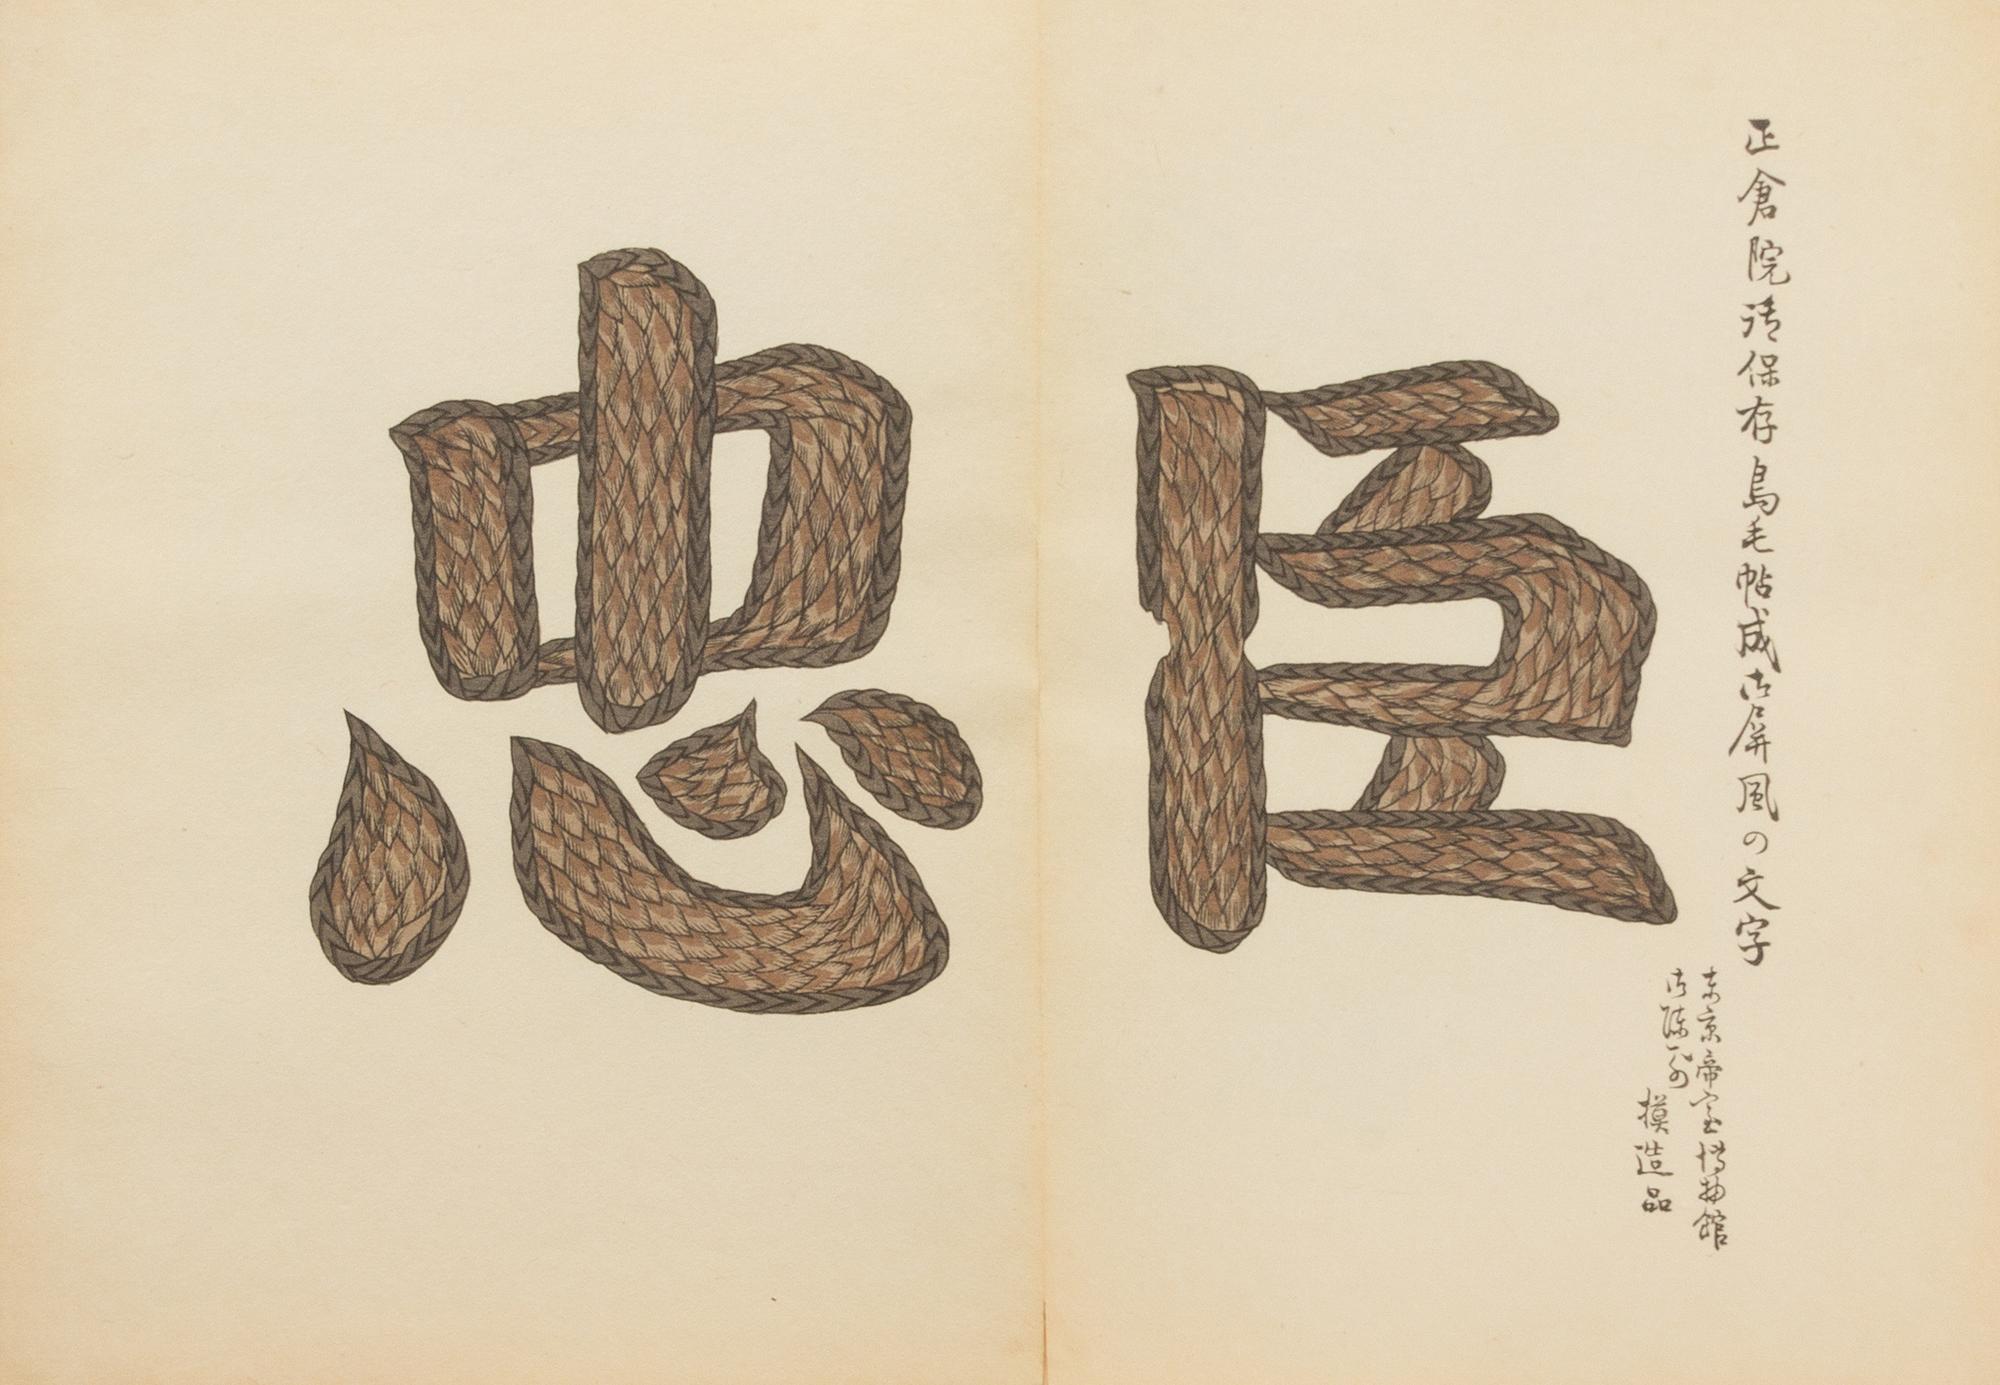 正倉院御保存鳥毛帖成御屏風の文字
東京帝室博物館
御陳列の
模造品
臣
忠